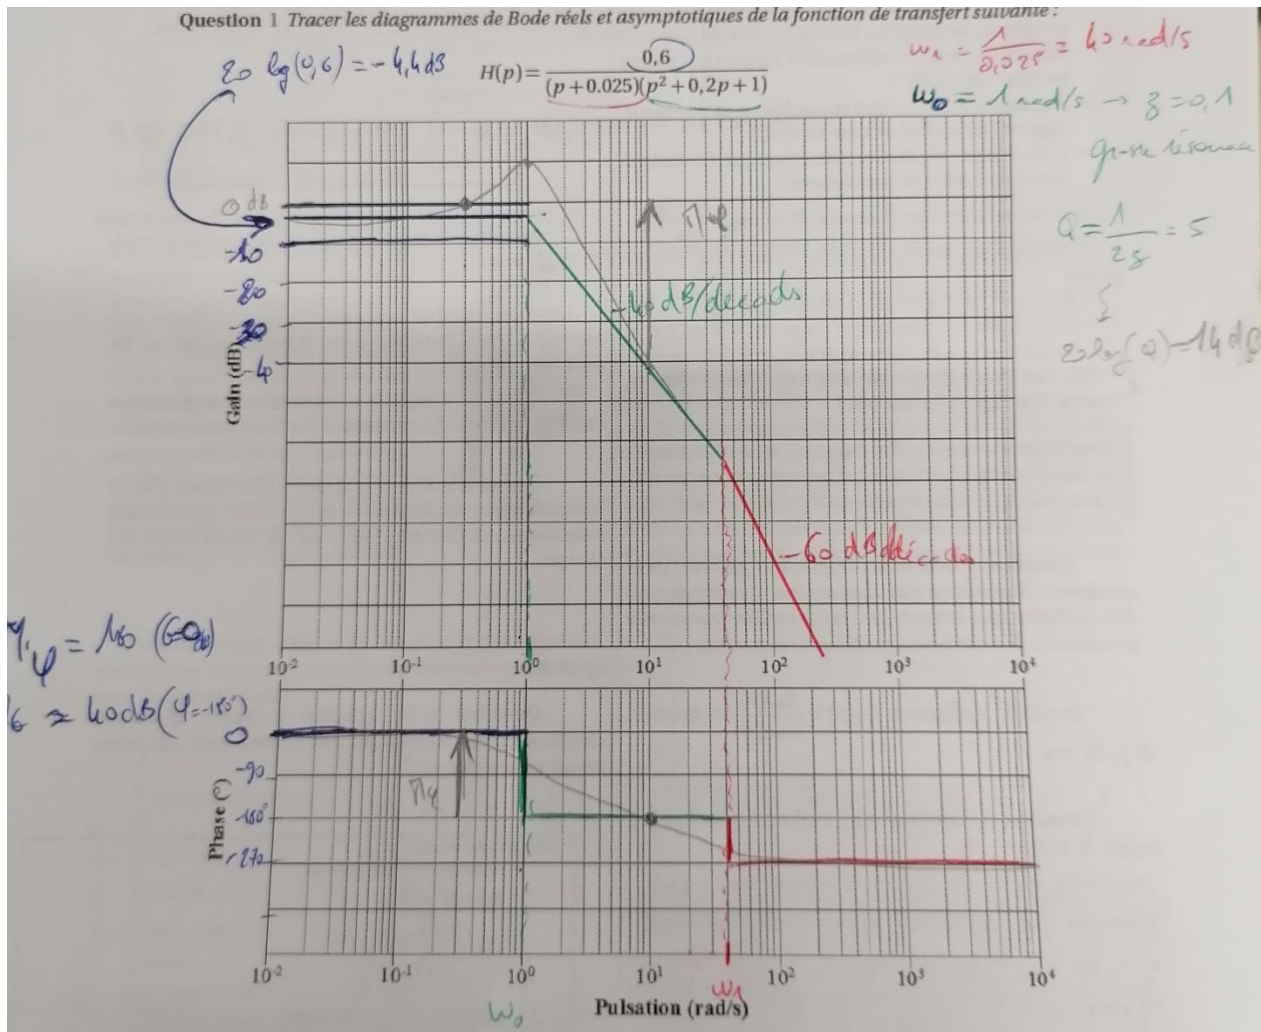 Question 1 Tracer les diagrammes de Bode réels et asymptotiques de la fonction de transfert suivante :
20 log(0,6) = -4,4dB
H(p) = 0,6 / (p+0.025)(p²+0,2p+1)
ω1 = 1/0,025 = 40 rad/s
ω0 = 1 rad/s → z=0,1
grosse résonance
Q = 1/2z = 5
20log(Q)=14dB
0 dB
-10
-20
-30
-40
Gain (dB)
Mφ
-40 dB/decade
-60 dB/décade
10⁻² 10⁻¹ 10⁰ 10¹ 10² 10³ 10⁴
Mφ = 180 (G=0dB)
≈ 40dB (φ=-180°)
0
-90
-180°
-270
Phase (°)
Mφ
10⁻² 10⁻¹ 10⁰ 10¹ 10² 10³ 10⁴
ω0
ω1
Pulsation (rad/s)